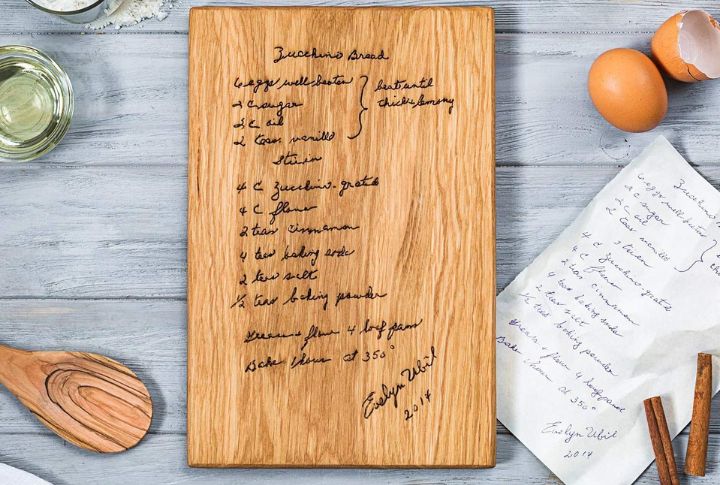 Zucchino Bread
6 eggs well beaten } beat until
2 C sugar thick & foamy
2 C oil
2 teas vanilla
Stir in
4 C Zucchino - grated
4 C flour
2 teas cinnamon
4 teas baking soda
2 teas salt
1/2 teas baking powder
flour 4 loaf pans
Bake 1 hour at 350°
Evelyn Ubil
2014
Zucchino Bread
6 eggs well beaten }
2 C sugar
2 C oil
2 teas vanilla
Stir in
4 C Zucchino - grated
4 C flour
2 teas cinnamon
4 teas baking soda
2 teas salt
1/2 teas baking powder
flour 4 loaf pans
Bake 1 hour at 350°
Evelyn Ubil
2014